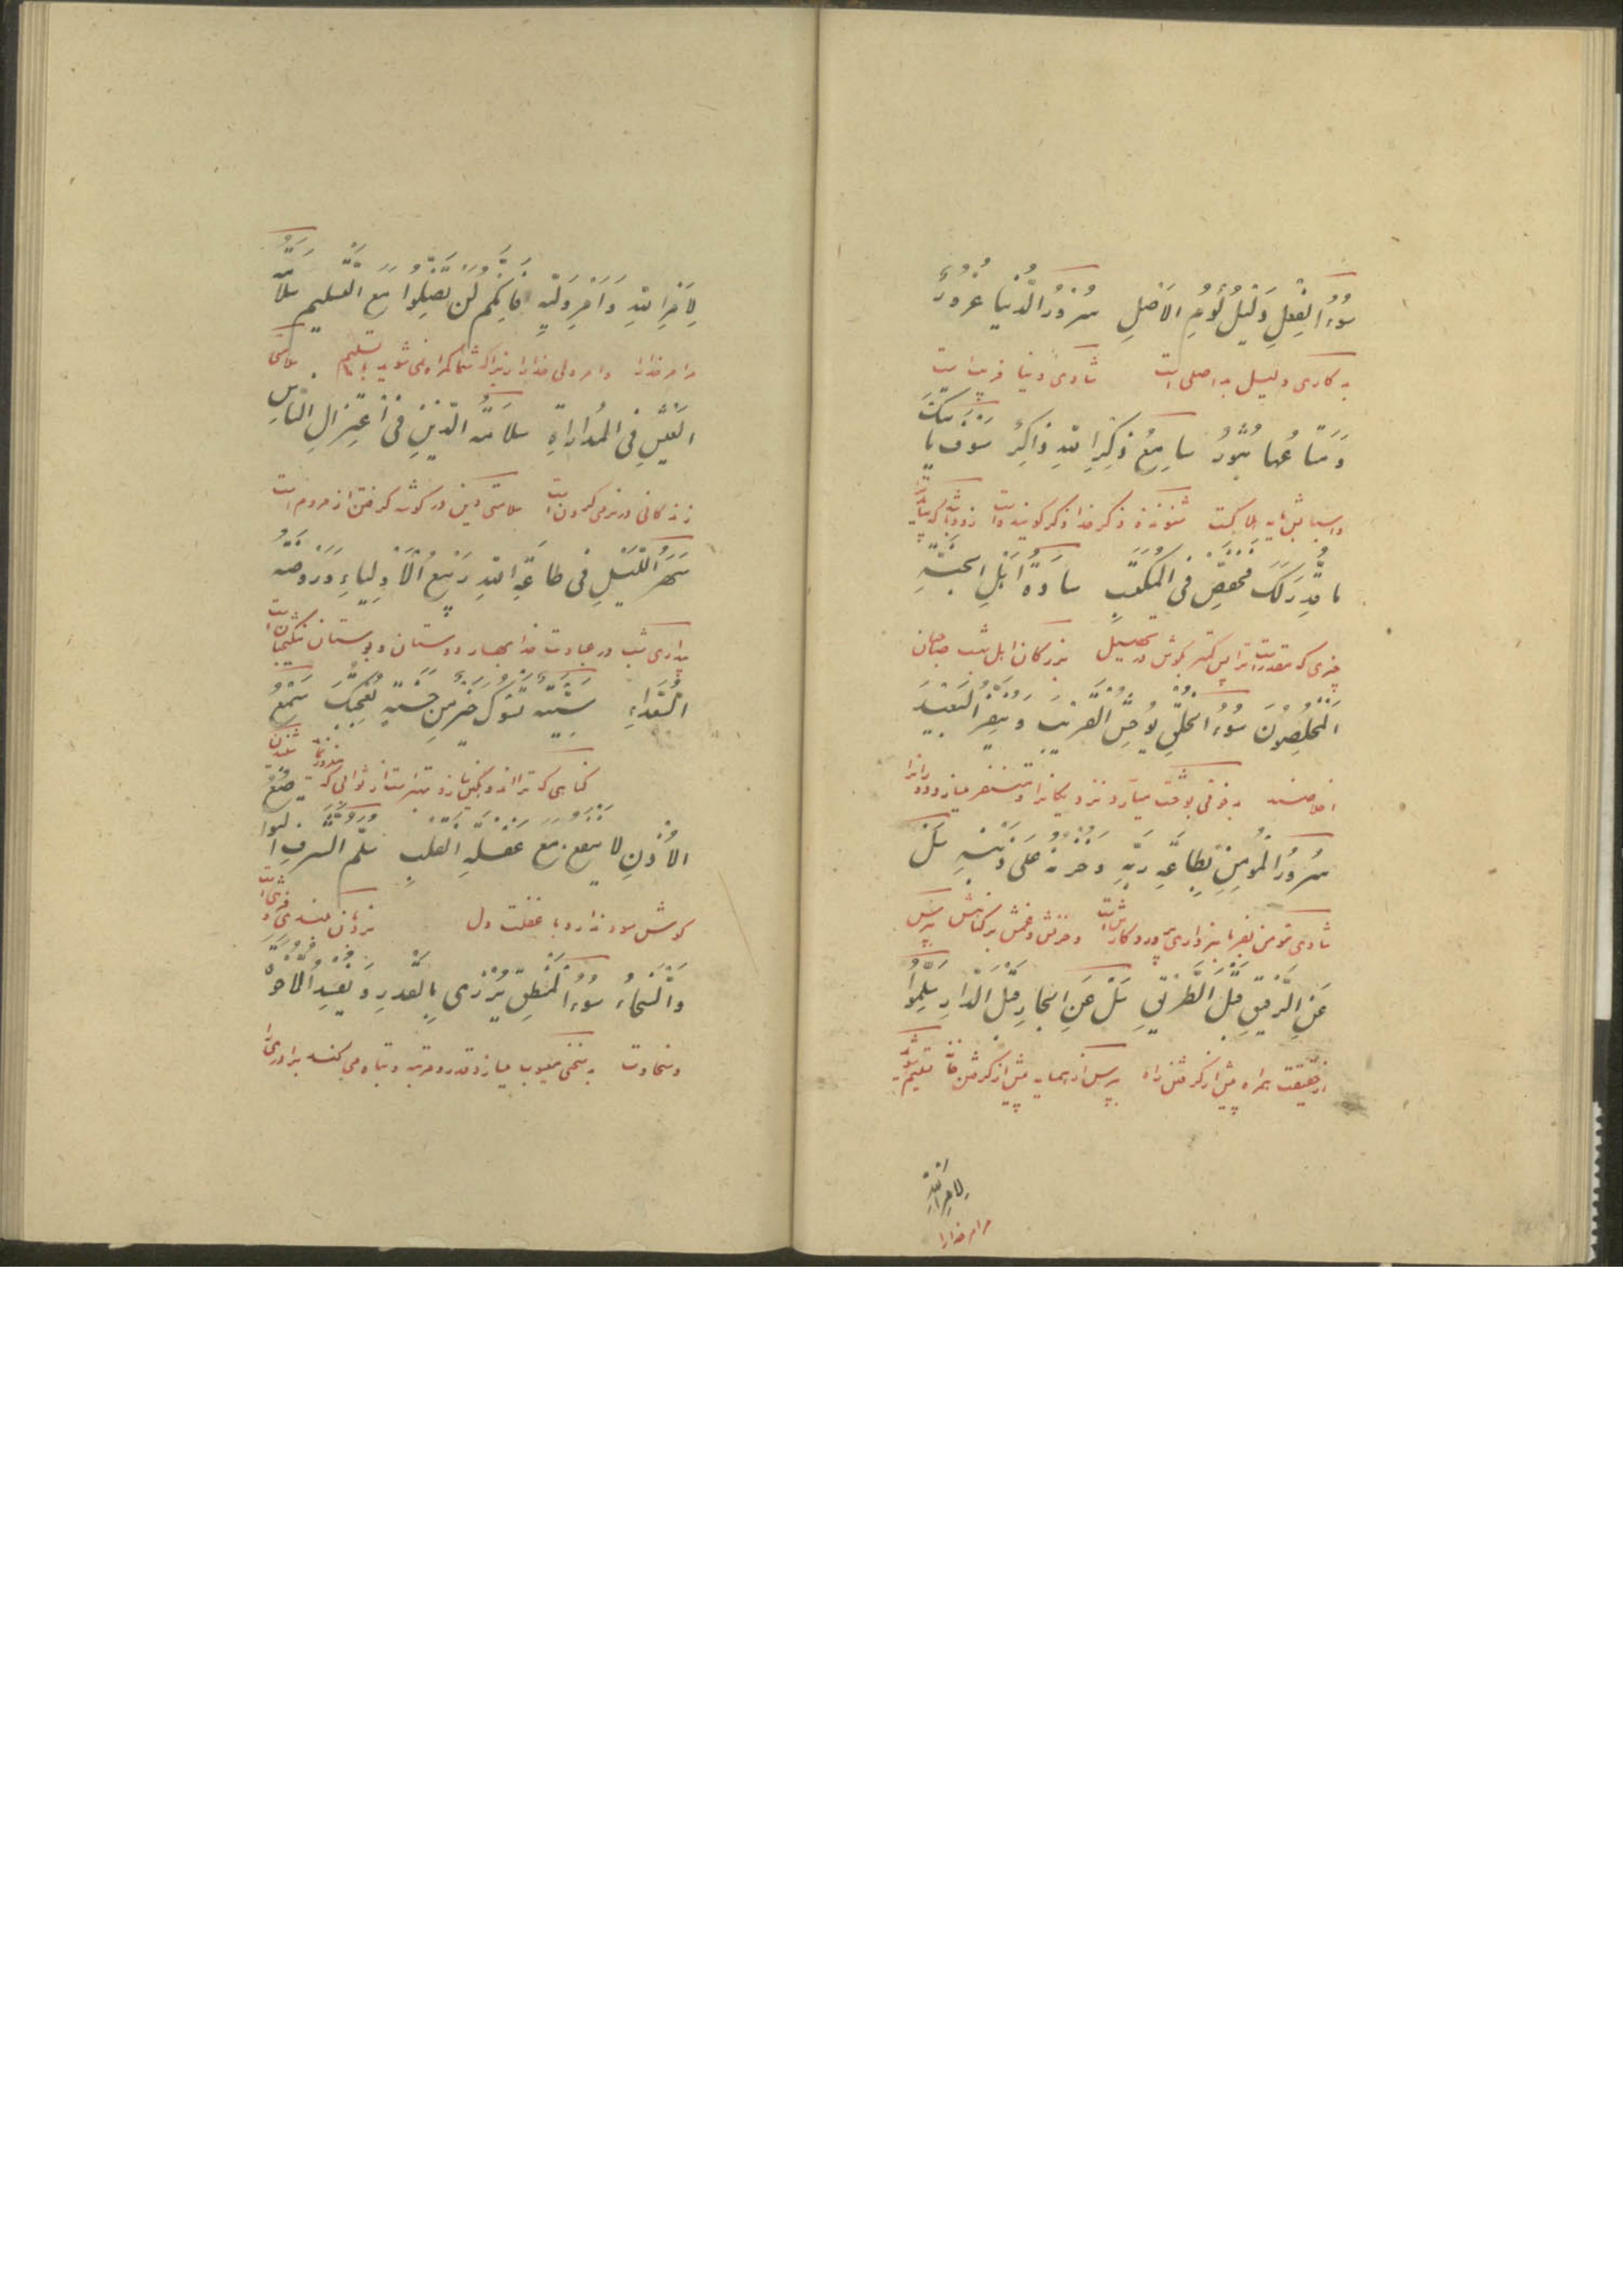 سُوءُ الْفِعْلِ دَلِيْلُ لُؤْمِ الاَصْلِ سُرُورُ الدُّنْيا غُرُورٌ
بد کاری دلیل بد اصلی است شادی دنیا فریب است
وَمَتاعُها ثُبُورٌ سامِعُ ذِكْرِ اللهِ ذاكِرٌ سَوْفَ يَأْتِيْكَ
شنونده ذکر خدا ذکر گوینده است زود باشد که بیاید
ما قُدِّرَ لَكَ فَخَفِّضْ فِى الْمُكْتَسَبِ سادَةُ اَهْلِ الْجَنَّةِ
چیزی که مقدر است ترا پس کمتر کوش در تحصیل بزرگان اهل بهشت صاحبان
الْمُخْلِصُوْنَ سُوءُ الْخُلْقِ يُوحِشُ الْقَرِيْبَ وَيُنَفِّرُ الْبَعِيْدَ
اخلاصند
سُرُورُ الْمُؤمِنِ بِطاعَةِ رَبِّهِ وَحُزْنُهُ عَلى ذَنْبِهِ سَلْ
شادی مؤمن بفرمانبرداری پروردگارش است و حزنش و غمش بر گناهش بپرس
عَنِ الرَّفِيْقِ قَبْلَ الطَّرِيْقِ سَلْ عَنِ الْجارِ قَبْلَ الدّارِ سَلِّمُوا
از حقیقت همراه پیش از گرفتن راه بپرس از همسایه پیش از گرفتن خانه تسلیم شوید
لِاَمْرِ اللهِ
مر امر خدا را
لِاَمْرِ اللهِ وَلِاَمْرِ وَلِيِّهِ فَاِنَّكُمْ لَنْ تَضِلُّوا مَعَ التَّسْلِيمِ سَلامَةُ
مر امر خدا را و امر ولی خدا را زیرا که شما گمراه نمی شوید با تسلیم سلامتی
الْعَيْشِ فِى الْمُداراةِ سَلامَةُ الدِّيْنِ فِى اعْتِزالِ النّاسِ
زندگانی در نرمی کردن است سلامتی دین در گوشه گرفتن از مردم است
سَهَرُ اللَّيْلِ فِى طاعَةِ اللهِ رَبِيْعُ الْاَوْلِياءِ وَرَوْضَةُ
بیداری شب در عبادت خدا بهار دوستان و بوستان نیکبختان است
السُّعَداءِ سَيِّئَةٌ تَسُوءُكَ خَيْرٌ مِنْ حَسَنَةٍ تُعْجِبُكَ سَمْعُ
گناهی که ترا اندوهگین سازد بهتر است از ثوابی که
الاُذُنِ لا يَنْفَعُ مَعَ غَفْلَةِ الْقَلْبِ سُلَّمُ الشَّرَفِ التَّواضُعُ
گوش سود ندارد با غفلت دل نردبان بلندی فروتنی است
وَالسَّخاءُ سُوءُ الْمَنْطِقِ يُزْرِى بِالْقَدْرِ وَيُفْسِدُ الْاُخُوَّةَ
و سخاوت بد سخنی معیوب میسازد قدر و مرتبه و تباه می کند برادری را